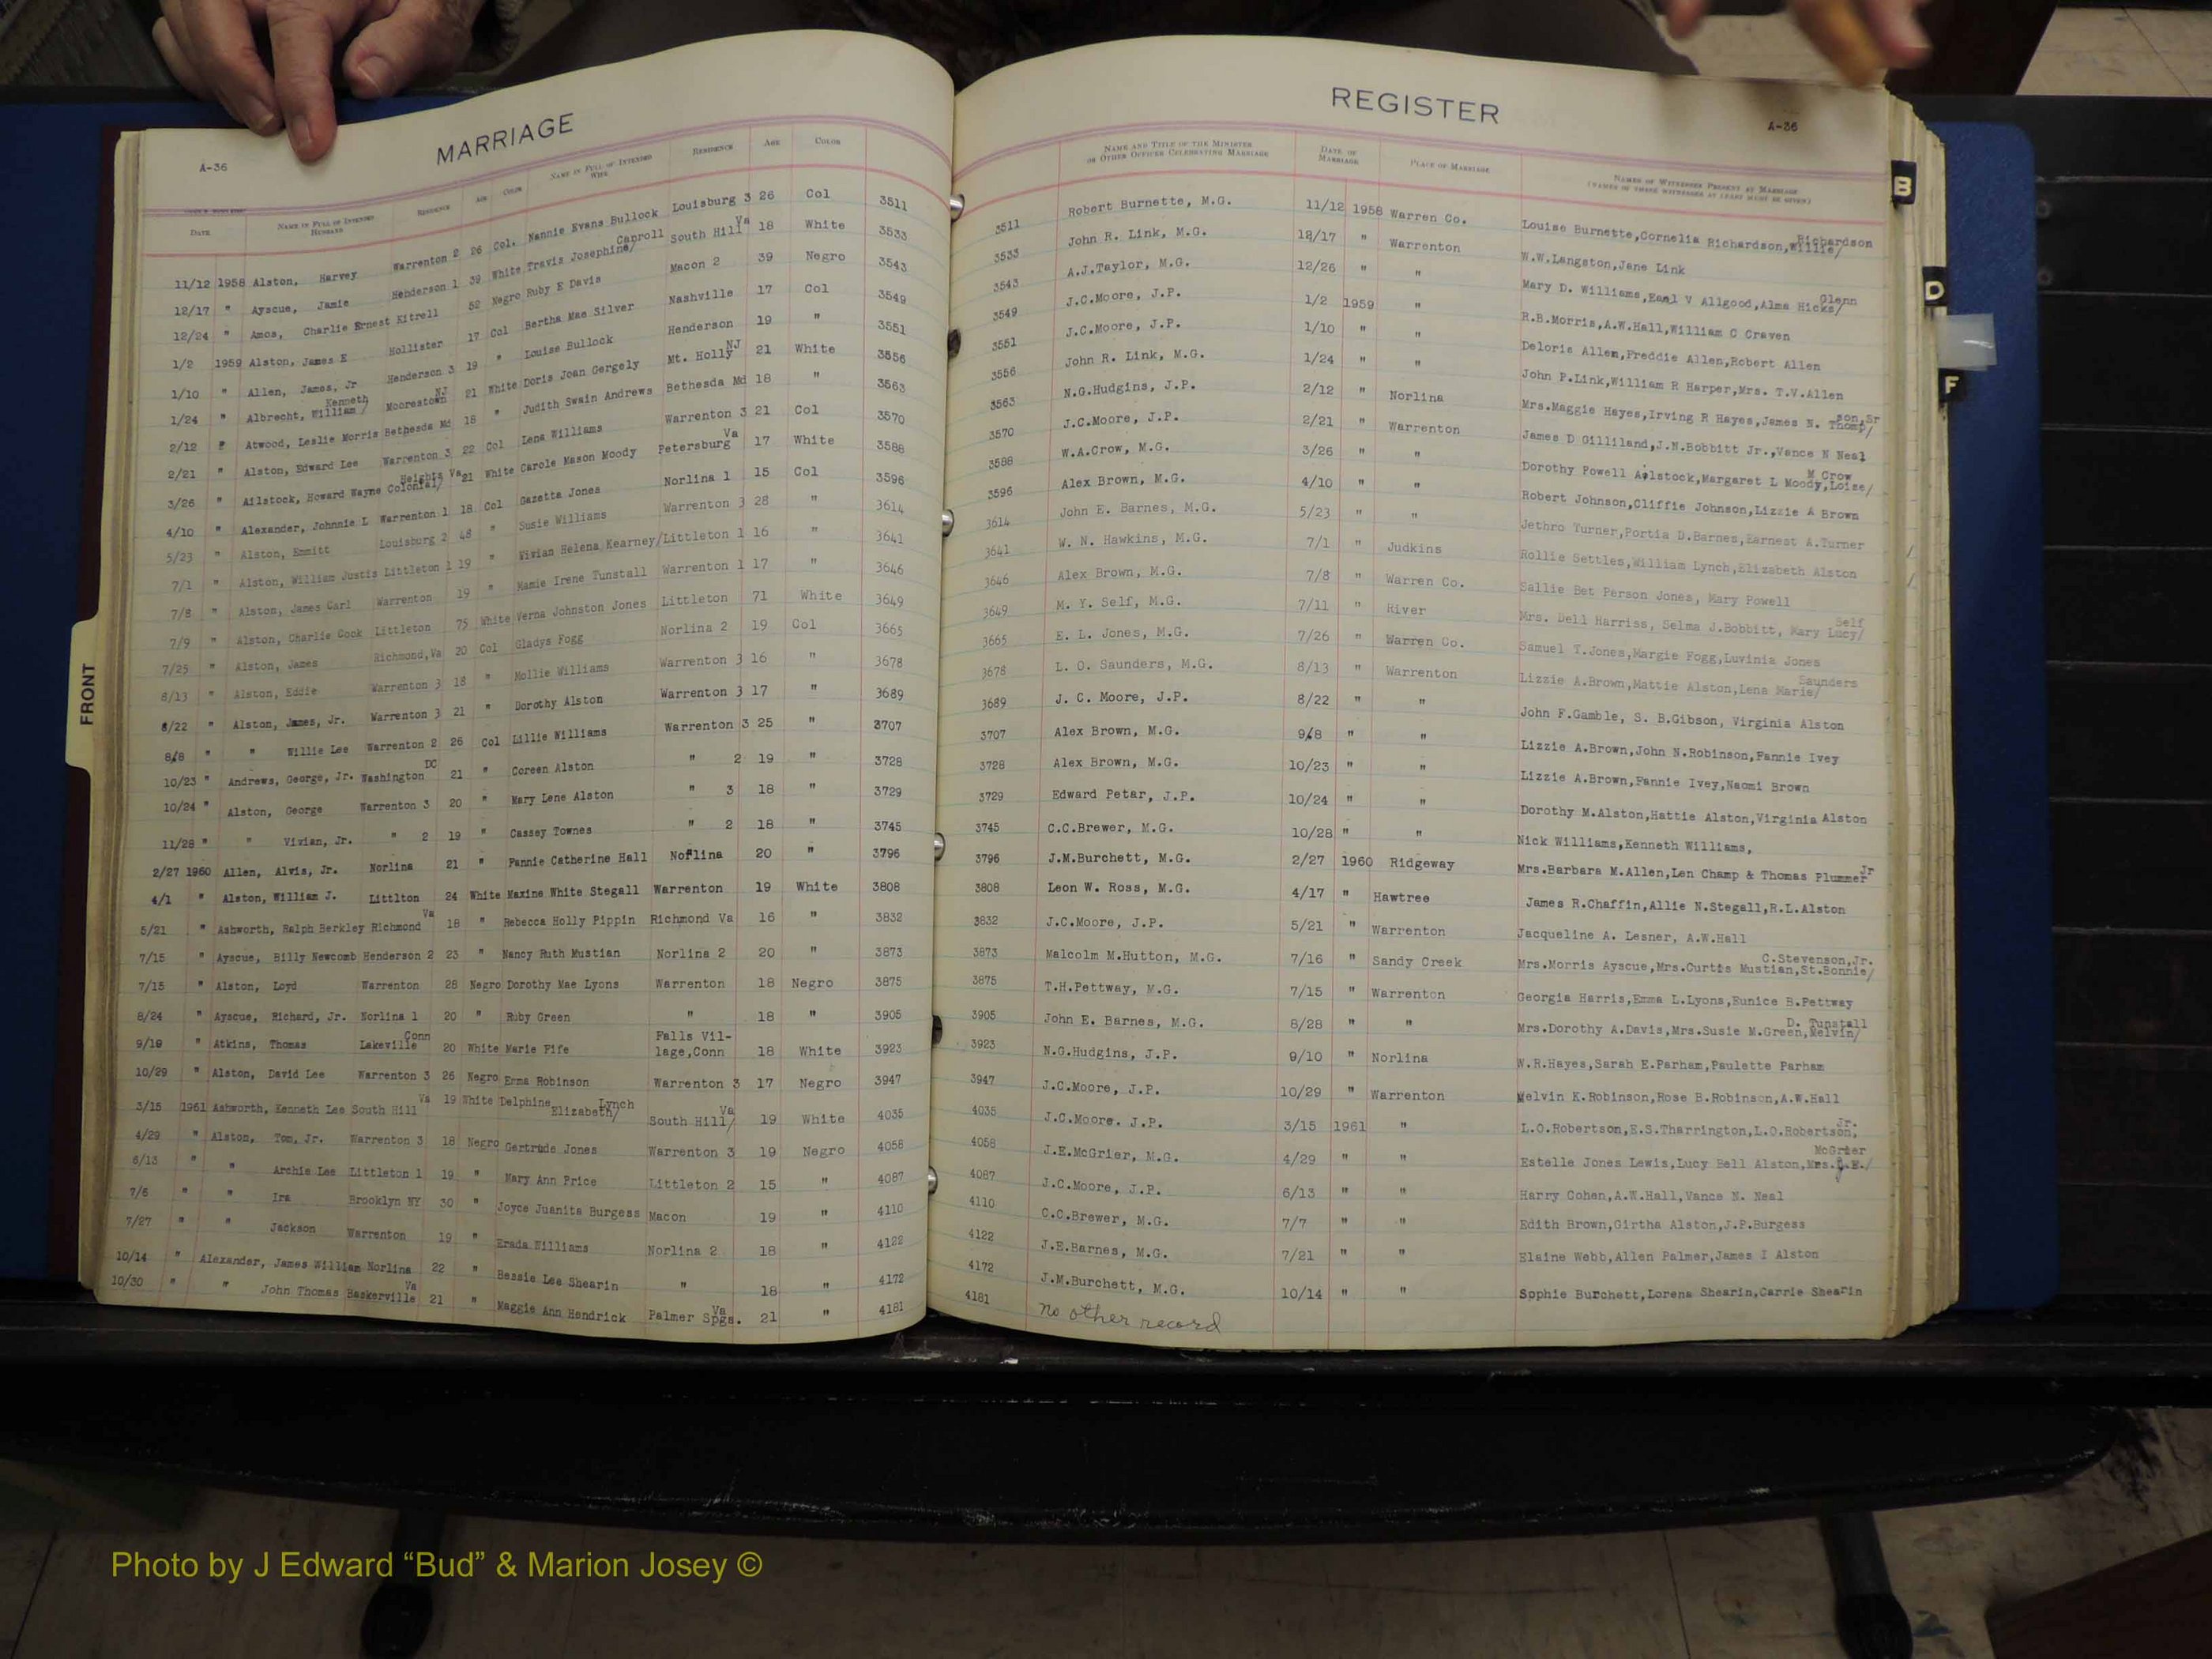 MARRIAGE
A-36
DATE NAME IN FULL OF INTENDED HUSBAND RESIDENCE AGE COLOR NAME IN FULL OF INTENDED WIFE RESIDENCE AGE COLOR
11/12 1958 Alston, Harvey Warrenton 2 26 Col. Nannie Evans Bullock Louisburg 3 26 Col 3511
12/17 " Ayscue, Jamie Henderson 1 39 White Travis Josephine/ Caproll South Hill Va 18 White 3533
12/24 " Amos, Charlie Ernest Kitrell 52 Negro Ruby E Davis Macon 2 39 Negro 3543
1/2 1959 Alston, James E Hollister 17 Col Bertha Mae Silver Nashville 17 Col 3549
1/10 " Allen, James, Jr Henderson 3 19 " Louise Bullock Henderson 19 " 3551
1/24 " Albrecht, William/ Kenneth Moorestown NJ 21 White Doris Joan Gergely Mt. Holly NJ 21 White 3556
2/12 " Atwood, Leslie Morris Bethesda Md 18 " Judith Swain Andrews Bethesda Md 18 " 3563
2/21 " Alston, Edward Lee Warrenton 3 22 Col Lena Williams Warrenton 3 21 Col 3570
3/26 " Ailstock, Howard Wayne Colonial/ Heights Va 21 White Carole Mason Moody Petersburg Va 17 White 3588
4/10 " Alexander, Johnnie L Warrenton 1 18 Col Gazetta Jones Norlina 1 15 Col 3596
5/23 " Alston, Emmitt Louisburg 2 48 " Susie Williams Warrenton 3 28 " 3614
7/1 " Alston, William Justis Littleton 1 19 " Vivian Helena Kearney/Littleton 1 16 " 3641
7/8 " Alston, James Carl Warrenton 19 " Mamie Irene Tunstall Warrenton 1 17 " 3646
7/9 " Alston, Charlie Cook Littleton 75 White Verna Johnston Jones Littleton 71 White 3649
7/25 " Alston, James Richmond,Va 20 Col Gladys Fogg Norlina 2 19 Col 3665
8/13 " Alston, Eddie Warrenton 3 18 " Mollie Williams Warrenton 3 16 " 3678
8/22 " Alston, James, Jr. Warrenton 3 21 " Dorothy Alston Warrenton 3 17 " 3689
8/8 " " Willie Lee Warrenton 2 26 Col Lillie Williams Warrenton 3 25 " 3707
10/23 " Andrews, George, Jr. Washington DC 21 " Coreen Alston " 2 19 " 3728
10/24 " Alston, George Warrenton 3 20 " Mary Lene Alston " 3 18 " 3729
11/28 " " Vivian, Jr. " 2 19 " Cassey Townes " 2 18 " 3745
2/27 1960 Allen, Alvis, Jr. Norlina 21 " Fannie Catherine Hall Norlina 20 " 3796
4/1 " Alston, William J. Littlton 24 White Maxine White Stegall Warrenton 19 White 3808
5/21 " Ashworth, Ralph Berkley Richmond Va 18 " Rebecca Holly Pippin Richmond Va 16 " 3832
7/15 " Ayscue, Billy Newcomb Henderson 2 23 " Nancy Ruth Mustian Norlina 2 20 " 3873
7/15 " Alston, Loyd Warrenton 28 Negro Dorothy Mae Lyons Warrenton 18 Negro 3875
8/24 " Ayscue, Richard, Jr. Norlina 1 20 " Ruby Green " 18 " 3905
9/10 " Atkins, Thomas Lakeville Conn 20 White Marie Fife Falls Vil-lage,Conn 18 White 3923
10/29 " Alston, David Lee Warrenton 3 26 Negro Emma Robinson Warrenton 3 17 Negro 3947
3/15 1961 Ashworth, Kenneth Lee South Hill Va 19 White Delphine Elizabeth/ Lynch South Hill/ Va 19 White 4035
4/29 " Alston, Tom, Jr. Warrenton 3 18 Negro Gertrude Jones Warrenton 3 19 Negro 4058
6/13 " " Archie Lee Littleton 1 19 " Mary Ann Price Littleton 2 15 " 4087
7/6 " " Ira Brooklyn NY 30 " Joyce Juanita Burgess Macon 19 " 4110
7/27 " " Jackson Warrenton 19 " Erada Williams Norlina 2 18 " 4122
10/14 " Alexander, James William Norlina 22 " Bessie Lee Shearin " 18 " 4172
10/30 " " John Thomas Baskerville Va 21 " Maggie Ann Hendrick Palmer Spgs. Va 21 " 4181
REGISTER
A-36
NAME AND TITLE OF THE MINISTER OR OTHER OFFICER CELEBRATING MARRIAGE DATE OF MARRIAGE PLACE OF MARRIAGE NAMES OF WITNESSES PRESENT AT MARRIAGE
(NAMES OF THREE WITNESSES AT LEAST MUST BE GIVEN)
3511 Robert Burnette, M.G. 11/12 1958 Warren Co. Louise Burnette,Cornelia Richardson,Willie/ Richardson
3533 John R. Link, M.G. 12/17 " Warrenton W.W.Langston,Jane Link
3543 A.J.Taylor, M.G. 12/26 " " Mary D. Williams,Earl V Allgood,Alma Hicks/ Glenn
3549 J.C.Moore, J.P. 1/2 1959 " R.B.Morris,A.W.Hall,William C Craven
3551 J.C.Moore, J.P. 1/10 " " Deloris Allen,Freddie Allen,Robert Allen
3556 John R. Link, M.G. 1/24 " " John P.Link,William R Harper,Mrs. T.V.Allen
3563 N.G.Hudgins, J.P. 2/12 " Norlina Mrs.Maggie Hayes,Irving R Hayes,James N. Thomp/ son,Sr
3570 J.C.Moore, J.P. 2/21 " Warrenton James D Gilliland,J.N.Bobbitt Jr.,Vance N Neal
3588 W.A.Crow, M.G. 3/26 " " Dorothy Powell Ailstock,Margaret L Moody,Loise/ M Crow
3596 Alex Brown, M.G. 4/10 " " Robert Johnson,Cliffie Johnson,Lizzie A Brown
3614 John E. Barnes, M.G. 5/23 " " Jethro Turner,Portia D.Barnes,Earnest A.Turner
3641 W. N. Hawkins, M.G. 7/1 " Judkins Rollie Settles,William Lynch,Elizabeth Alston
3646 Alex Brown, M.G. 7/8 " Warren Co. Sallie Bet Person Jones, Mary Powell
3649 M. Y. Self, M.G. 7/11 " River Mrs. Dell Harriss, Selma J.Bobbitt, Mary Lucy/ Self
3665 E. L. Jones, M.G. 7/26 " Warren Co. Samuel T.Jones,Margie Fogg,Luvinia Jones
3678 L. O. Saunders, M.G. 8/13 " Warrenton Lizzie A.Brown,Mattie Alston,Lena Marie/ Saunders
3689 J. C. Moore, J.P. 8/22 " " John F.Gamble, S. B.Gibson, Virginia Alston
3707 Alex Brown, M.G. 9/8 " " Lizzie A.Brown,John N.Robinson,Fannie Ivey
3728 Alex Brown, M.G. 10/23 " " Lizzie A.Brown,Fannie Ivey,Naomi Brown
3729 Edward Petar, J.P. 10/24 " " Dorothy M.Alston,Hattie Alston,Virginia Alston
3745 C.C.Brewer, M.G. 10/28 " " Nick Williams,Kenneth Williams,
3796 J.M.Burchett, M.G. 2/27 1960 Ridgeway Mrs.Barbara M.Allen,Len Champ & Thomas Plummer Jr
3808 Leon W. Ross, M.G. 4/17 " Hawtree James R.Chaffin,Allie N.Stegall,R.L.Alston
3832 J.C.Moore, J.P. 5/21 " Warrenton Jacqueline A. Lesner, A.W.Hall
3873 Malcolm M.Hutton, M.G. 7/16 " Sandy Creek Mrs.Morris Ayscue,Mrs.Curtis Mustian,St.Bonnie/ C.Stevenson,Jr.
3875 T.H.Pettway, M.G. 7/15 " Warrenton Georgia Harris,Emma L.Lyons,Eunice B.Pettway
3905 John E. Barnes, M.G. 8/28 " " Mrs.Dorothy A.Davis,Mrs.Susie M.Green,Melvin/ D. Tunstall
3923 N.G.Hudgins, J.P. 9/10 " Norlina W.R.Hayes,Sarah E.Parham,Paulette Parham
3947 J.C.Moore, J.P. 10/29 " Warrenton Melvin K.Robinson,Rose B.Robinson,A.W.Hall
4035 J.C.Moore. J.P. 3/15 1961 " L.O.Robertson,E.S.Tharrington,L.O.Robertson, Jr.
4058 J.E.McGrier, M.G. 4/29 " " Estelle Jones Lewis,Lucy Bell Alston,Mrs.J.E./ McGrier
4087 J.C.Moore, J.P. 6/13 " " Harry Cohen,A.W.Hall,Vance N. Neal
4110 C.C.Brewer, M.G. 7/7 " " Edith Brown,Girtha Alston,J.P.Burgess
4122 J.E.Barnes, M.G. 7/21 " " Elaine Webb,Allen Palmer,James I Alston
4172 J.M.Burchett, M.G. 10/14 " " Sophie Burchett,Lorena Shearin,Carrie Shearin
4181 no other record
B
D
F
FRONT
Photo by J Edward “Bud” & Marion Josey ©